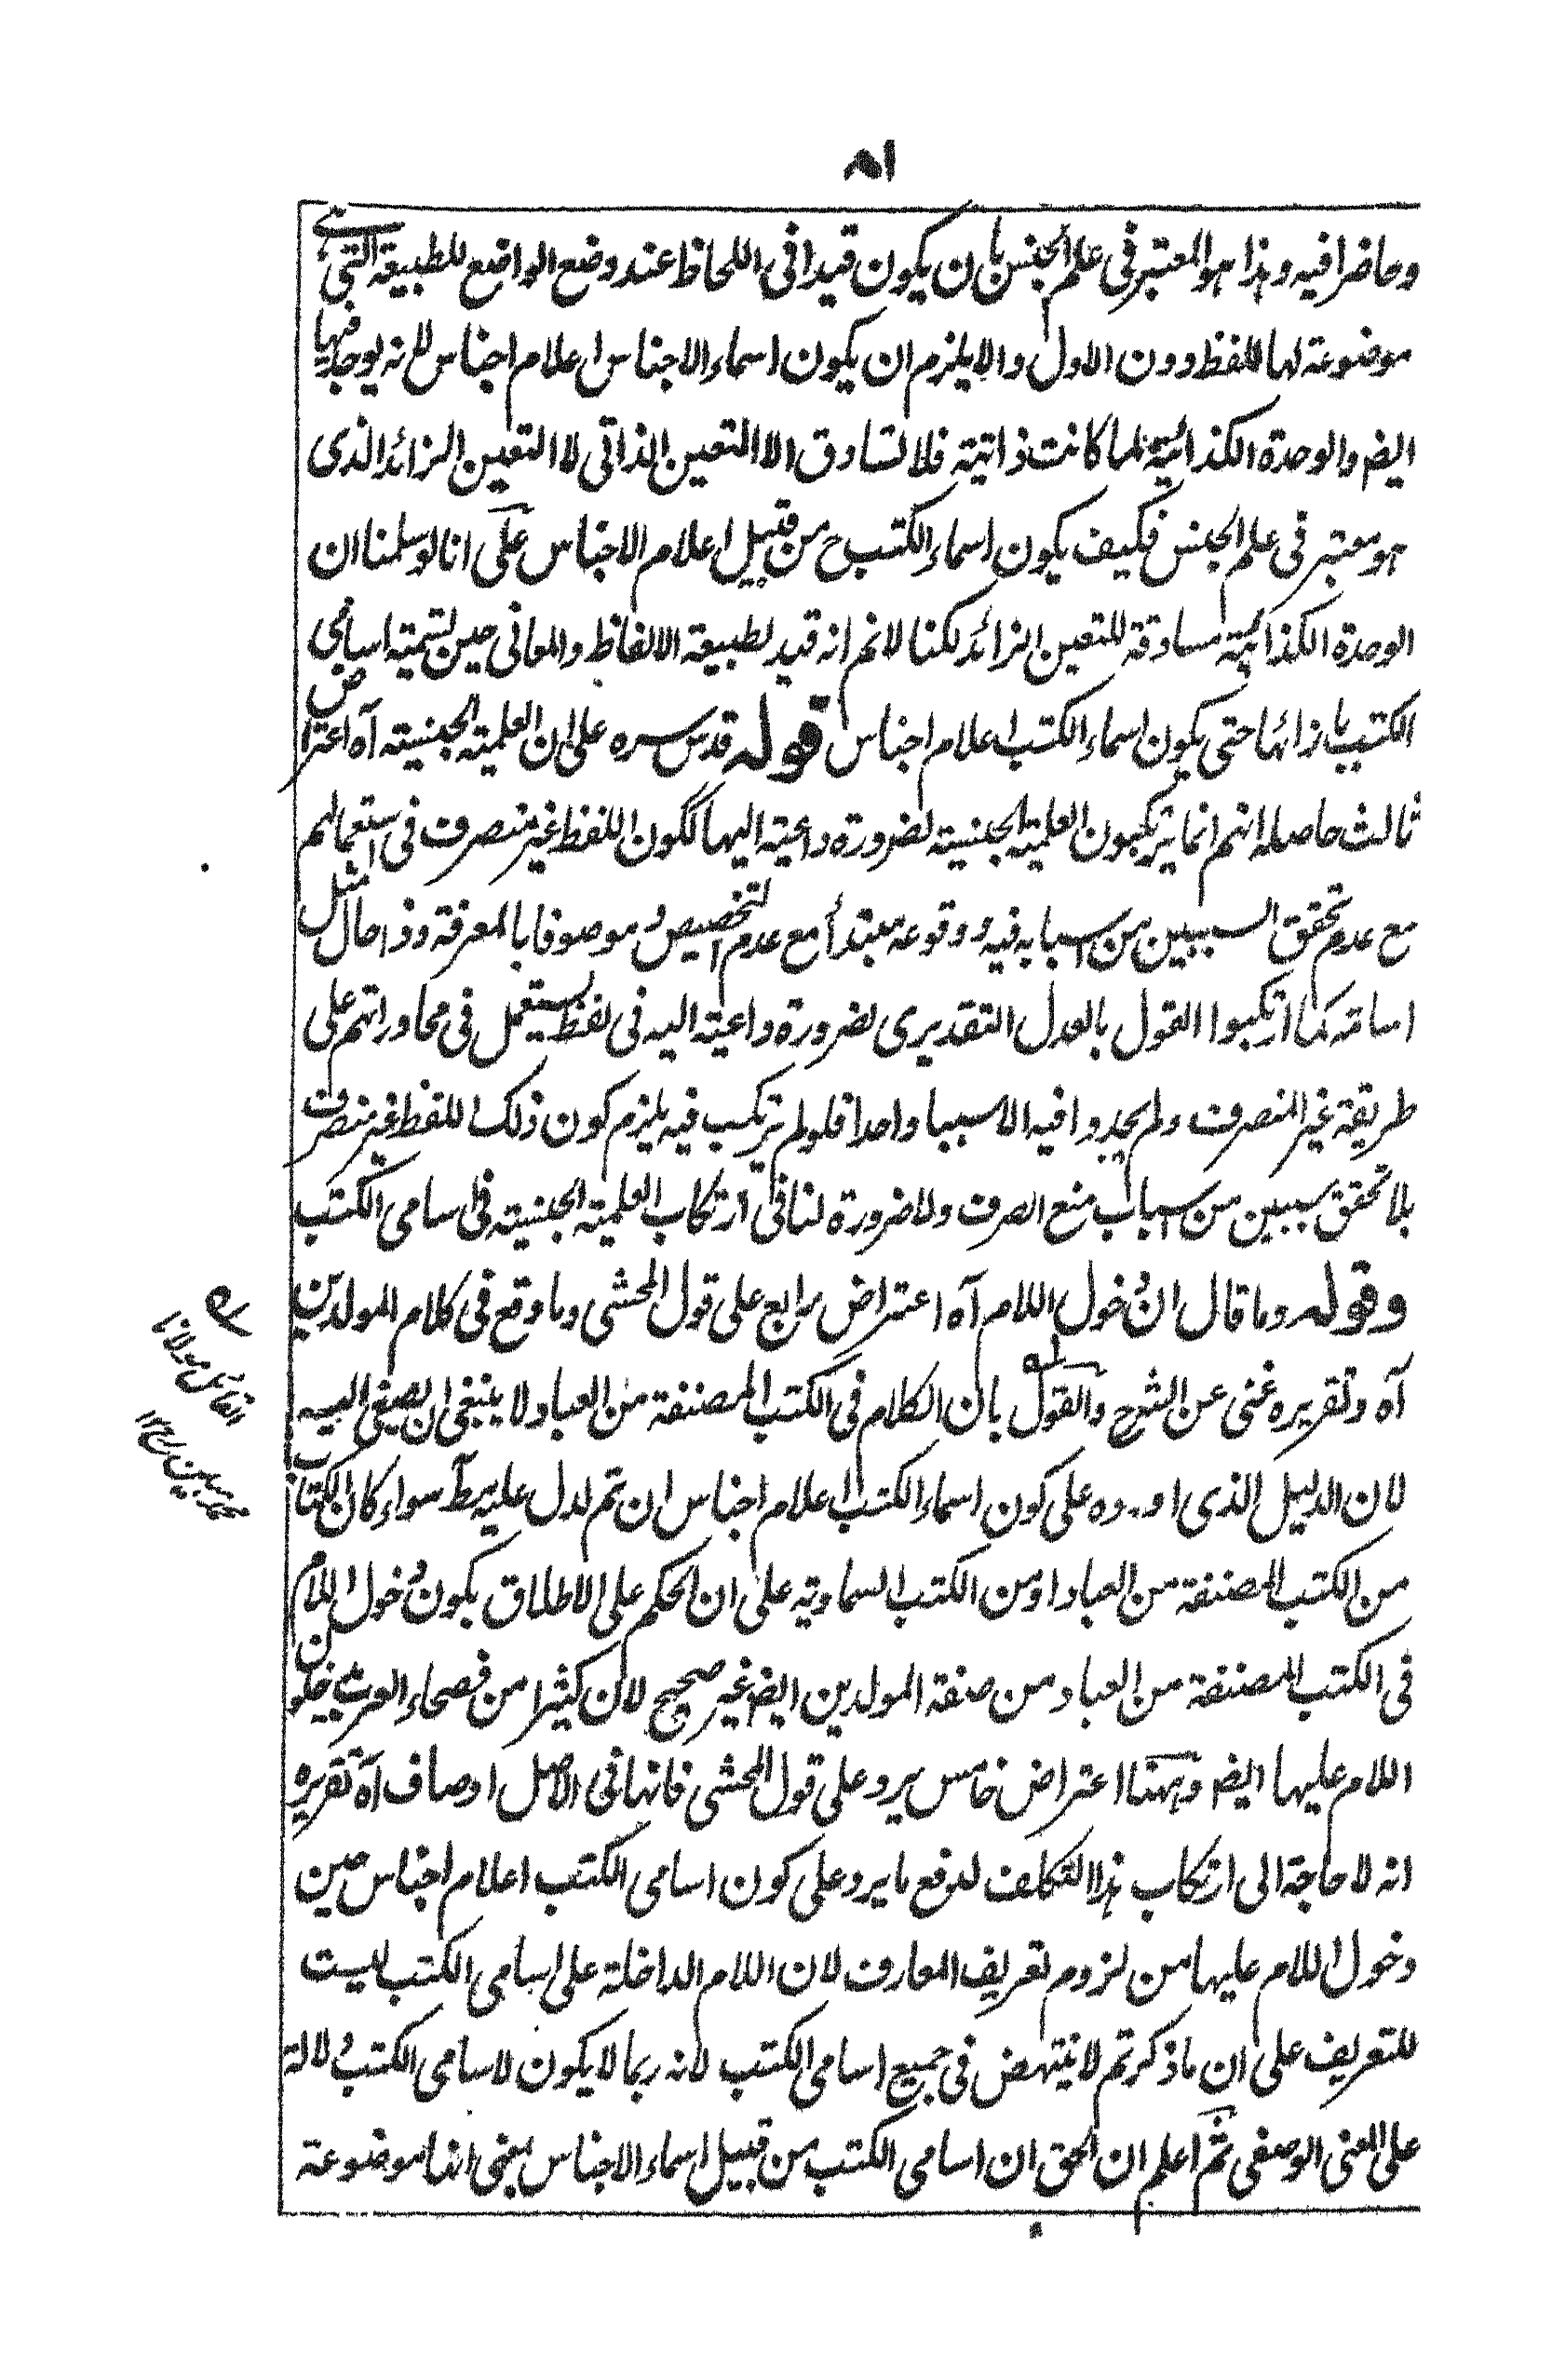 ٨١
وحاضرا فيه وهذا هو المعتبر في علم الجنس بان يكون قيدا في اللحاظ عند وضع الواضع للطبيعة التي
موضوعة لها اللفظ دون الاول والا يلزم ان يكون اسماء الاجناس اعلام اجناس لانه يوجد فيها
ايضا والوحدة الكذائية لما كانت ذاتية فلا تساوق الا التعين الذاتي لا التعين الزائد الذي
هو معتبر في علم الجنس فكيف يكون اسماء الكتب ح من قبيل اعلام الاجناس على انا لو سلمنا ان
الوحدة الكذائية مساوقة للتعين الزائد لكنا لانم انه قيد لطبيعة الالفاظ والمعاني حين تسمية اسامي
الكتب بازائها حتى يكون اسماء الكتب اعلام اجناس قوله قدس سره على ان العلمية الجنسية آه اعتراض
ثالث حاصله انهم انما يرتكبون العلمية الجنسية لضرورة داعية اليها ككون اللفظ غير منصرف في استعمالهم
مع عدم تحقق السببين من اسبابه فيه ووقوعه مبتدأ مع عدم التخصيص وموصوفا بالمعرفة وذا حال مثل
اسامة كما ارتكبوا القول بالعدل التقديري لضرورة داعية اليه في لفظ يستعمل في محاوراتهم على
طريقة غير المنصرف ولم يجدوا فيه الا سببا واحدا فلو لم يرتكب فيه يلزم كون ذلك اللفظ غير منصرف
بلا تحقق سببين من اسباب منع الصرف ولا ضرورة لنا في ارتكاب العلمية الجنسية في اسامي الكتب
وقوله وما قال ان دخول اللام آه اعتراض رابع على قول المحشي وما وقع في كلام المولدين
آه وتقريره غني عن الشرح والقول بان الكلام في الكتب المصنفة من العباد لا ينبغي ان يصغى اليه
لان الدليل الذي اورده على كون اسماء الكتب اعلام اجناس ان تم لدل عليه مط سواء كان الكتاب
من الكتب المصنفة من العباد او من الكتب السماوية على ان الحكم على الاطلاق بكون دخول اللام
في الكتب المصنفة من العباد من صنفة المولدين ايضا غير صحيح لان كثيرا من فصحاء العرب يدخلون
اللام عليها ايضا وههنا اعتراض خامس يرد على قول المحشي فانها في الاصل اوصاف آه تقريره
انه لا حاجة الى ارتكاب هذا التكلف لدفع ما يرد على كون اسامي الكتب اعلام اجناس حين
دخول اللام عليها من لزوم تعريف المعارف لان اللام الداخلة على اسامي الكتب ليست
للتعريف على ان ما ذكر تم لا ينتهض في جميع اسامي الكتب لانه ربما لا يكون لاسامي الكتب دلالة
على المعنى الوصفي ثم اعلم ان الحق ان اسامي الكتب من قبيل اسماء الاجناس بمعنى انها موضوعة
له
القائل مولانا
محمد مبين رح ١٢